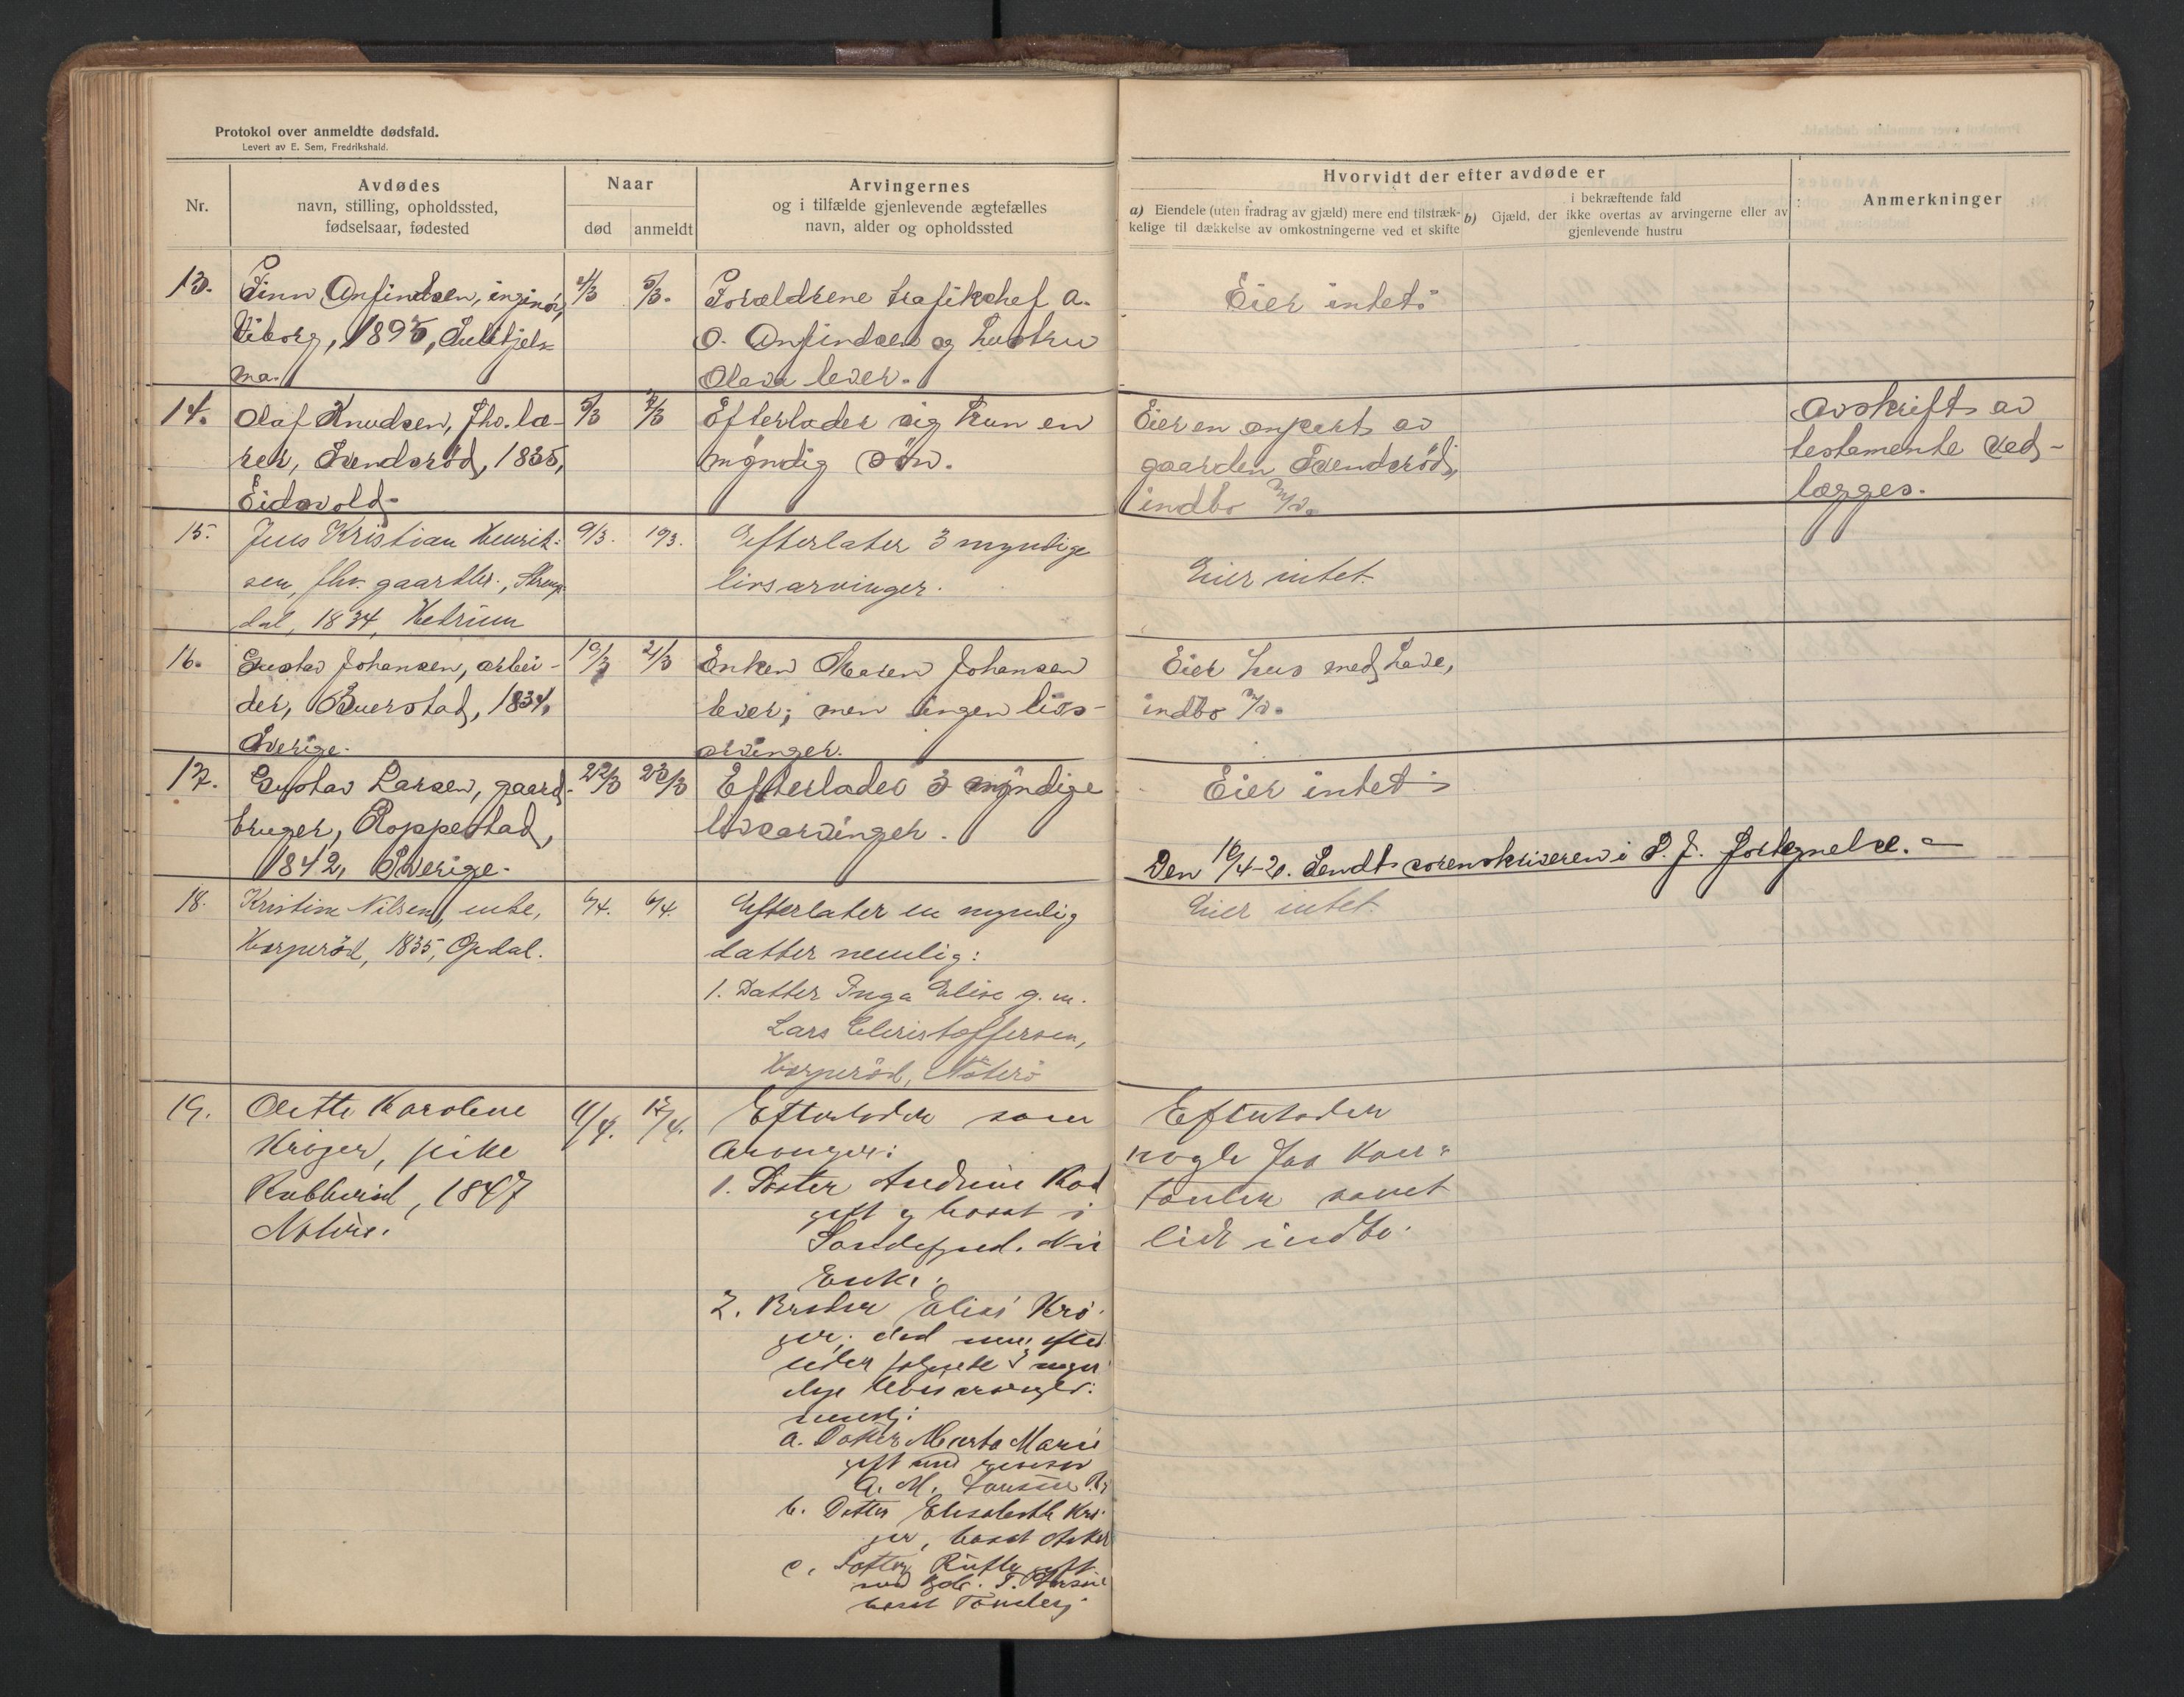 Protokol over anmeldte dødsfald.
Levert av E. Sem, Fredrikshald.
Nr.
Avdødes
navn, stilling, opholdssted,
fødselsaar, fødested
Naar
død
anmeldt
Arvingernes
og i tilfælde gjenlevende ægtefælles
navn, alder og opholdssted
Hvorvidt der efter avdøde er
a) Eiendele (uten fradrag av gjæld) mere end tilstræk-
kelige til dækkelse av omkostningerne ved et skifte
i bekræftende fald
b) Gjæld, der ikke overtas av arvingerne eller av
gjenlevende hustru
Anmerkninger
13.
Finn Anfindsen, inginør,
Viborg, 1895, Sulitjel-
ma.
4/3
5/3.
Forældrene trafikchef A.
O. Anfindsen og hustru
Olava lever.
Eier intet.
14.
Olaf Knudsen, fhv. læ-
rer, Svendsrød, 1835,
Eidsvold.
5/3
Efterlader sig kun en
myndig søn.
Eier en anpart av
gaarden Svendsrød,
indbo m/v.
Avskrift av
testamente ved-
lægges.
15.
Jens Kristian Henrik-
sen, fhv. gaardbr.,
dal, 1834, Hedrum
9/3.
19/3.
Efterlater 3 myndige
livsarvinger.
Eier intet.
16.
Gustav Johansen, arbei-
der, Buerstad, 1834,
Sverige.
19/3
21/3
Enken Maren Johansen
lever; men ingen livs-
arvinger.
Eier hus med have,
indbo m/v.
17.
Gustav Larsen, gaard-
bruger, Roppestad,
1842, Sverige.
22/3
23/3
Efterlader 3 myndige
livsarvinger.
Eier intet.
Den 10/4-20. Sendt sorenskriveren i S. J. fortegnelse.
18.
Kristine Nilsen, enke,
Korperød, 1835, Opdal.
6/4.
6/4.
Efterlater en myndig
datter nemlig:
1. Datter Inga Elise g. m.
Lars Christoffersen,
Korperød, Nøterø
Eier intet.
19.
Olette Karoline
Krøger, pike
1847
Nøterø.
11/4.
17/4.
Efterlader som
Arvinger:
1. Søster Andrine
gift og bosat i
Sandefjord. Nu
Enke.
2. Broder Elias Krø-
ger. død men efter-
lader følgende 3 myn-
dige livsarvinger:
nemlig:
a. Datter Marta Marie
gift med
A. M.
b. Datter Elisabeth Krø-
ger, bosat Asker
c. Datter gift
med T.
bosat Tønsberg
Efterlader
nogle faa kon-
tanter samt
lidt indbo.